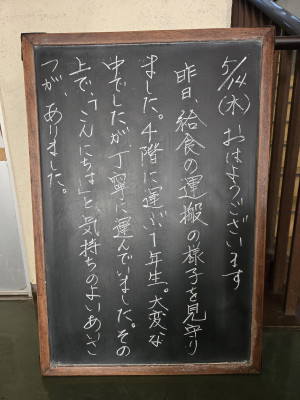 5/14(水)おはようございます
昨日、給食の運搬の様子を見守り
ました。4階に運ぶ1年生。大変な
中でしたが丁寧に運んでいました。その
上で、「こんにちは」と、気持ちのよいあいさ
つが、ありました。